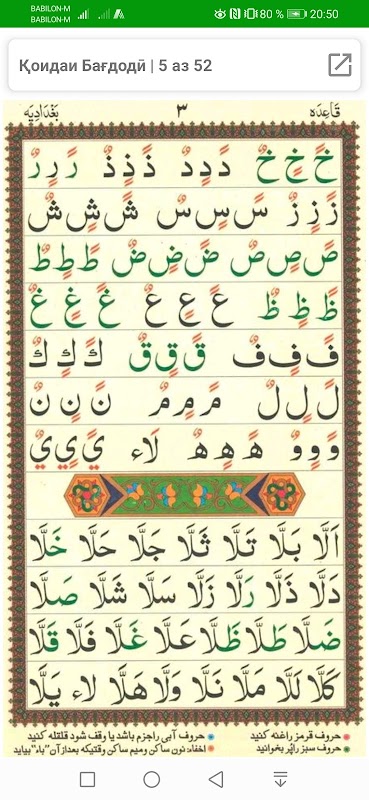 BABILON-M
BABILON-M
80 % 20:50
Қоидаи Бағдодӣ | 5 аз 52
قاعِدَه ٣ بَغْدَادِيَه
خً خٍ خٌ دً دٍ دٌ ذً ذٍ ذٌ رً رٍ رٌ
زً زٍ زٌ سً سٍ سٌ شً شٍ شٌ
صً صٍ صٌ ضً ضٍ ضٌ طً طٍ طٌ
ظً ظٍ ظٌ عً عٍ عٌ غً غٍ غٌ
فً فٍ فٌ قً قٍ قٌ كً كٍ كٌ
لً لٍ لٌ مً مٍ مٌ نً نٍ نٌ
وً وٍ وٌ هً هٍ هٌ لَاء يً يٍ يٌ
اَلَّا بَلَّا تَلَّا ثَلَّا جَلَّا حَلَّا خَلَّا
دَلَّا ذَلَّا رَلَّا زَلَّا سَلَّا شَلَّا صَلَّا
ضَلَّا طَلَّا ظَلَّا عَلَّا غَلَّا فَلَّا قَلَّا
كَلَّا لَلَّا مَلَّا نَلَّا وَلَّا هَلَّا لاء يَلَّا
حروف قرمز راغنه کنید
حروف آبی راجزم باشد یا وقف شود قلقله کنید
حروف سبز راپُر بخوانید
اخفاء: نون ساکن ومیم ساکن وقتیکه بعداز آن "باء" بیاید